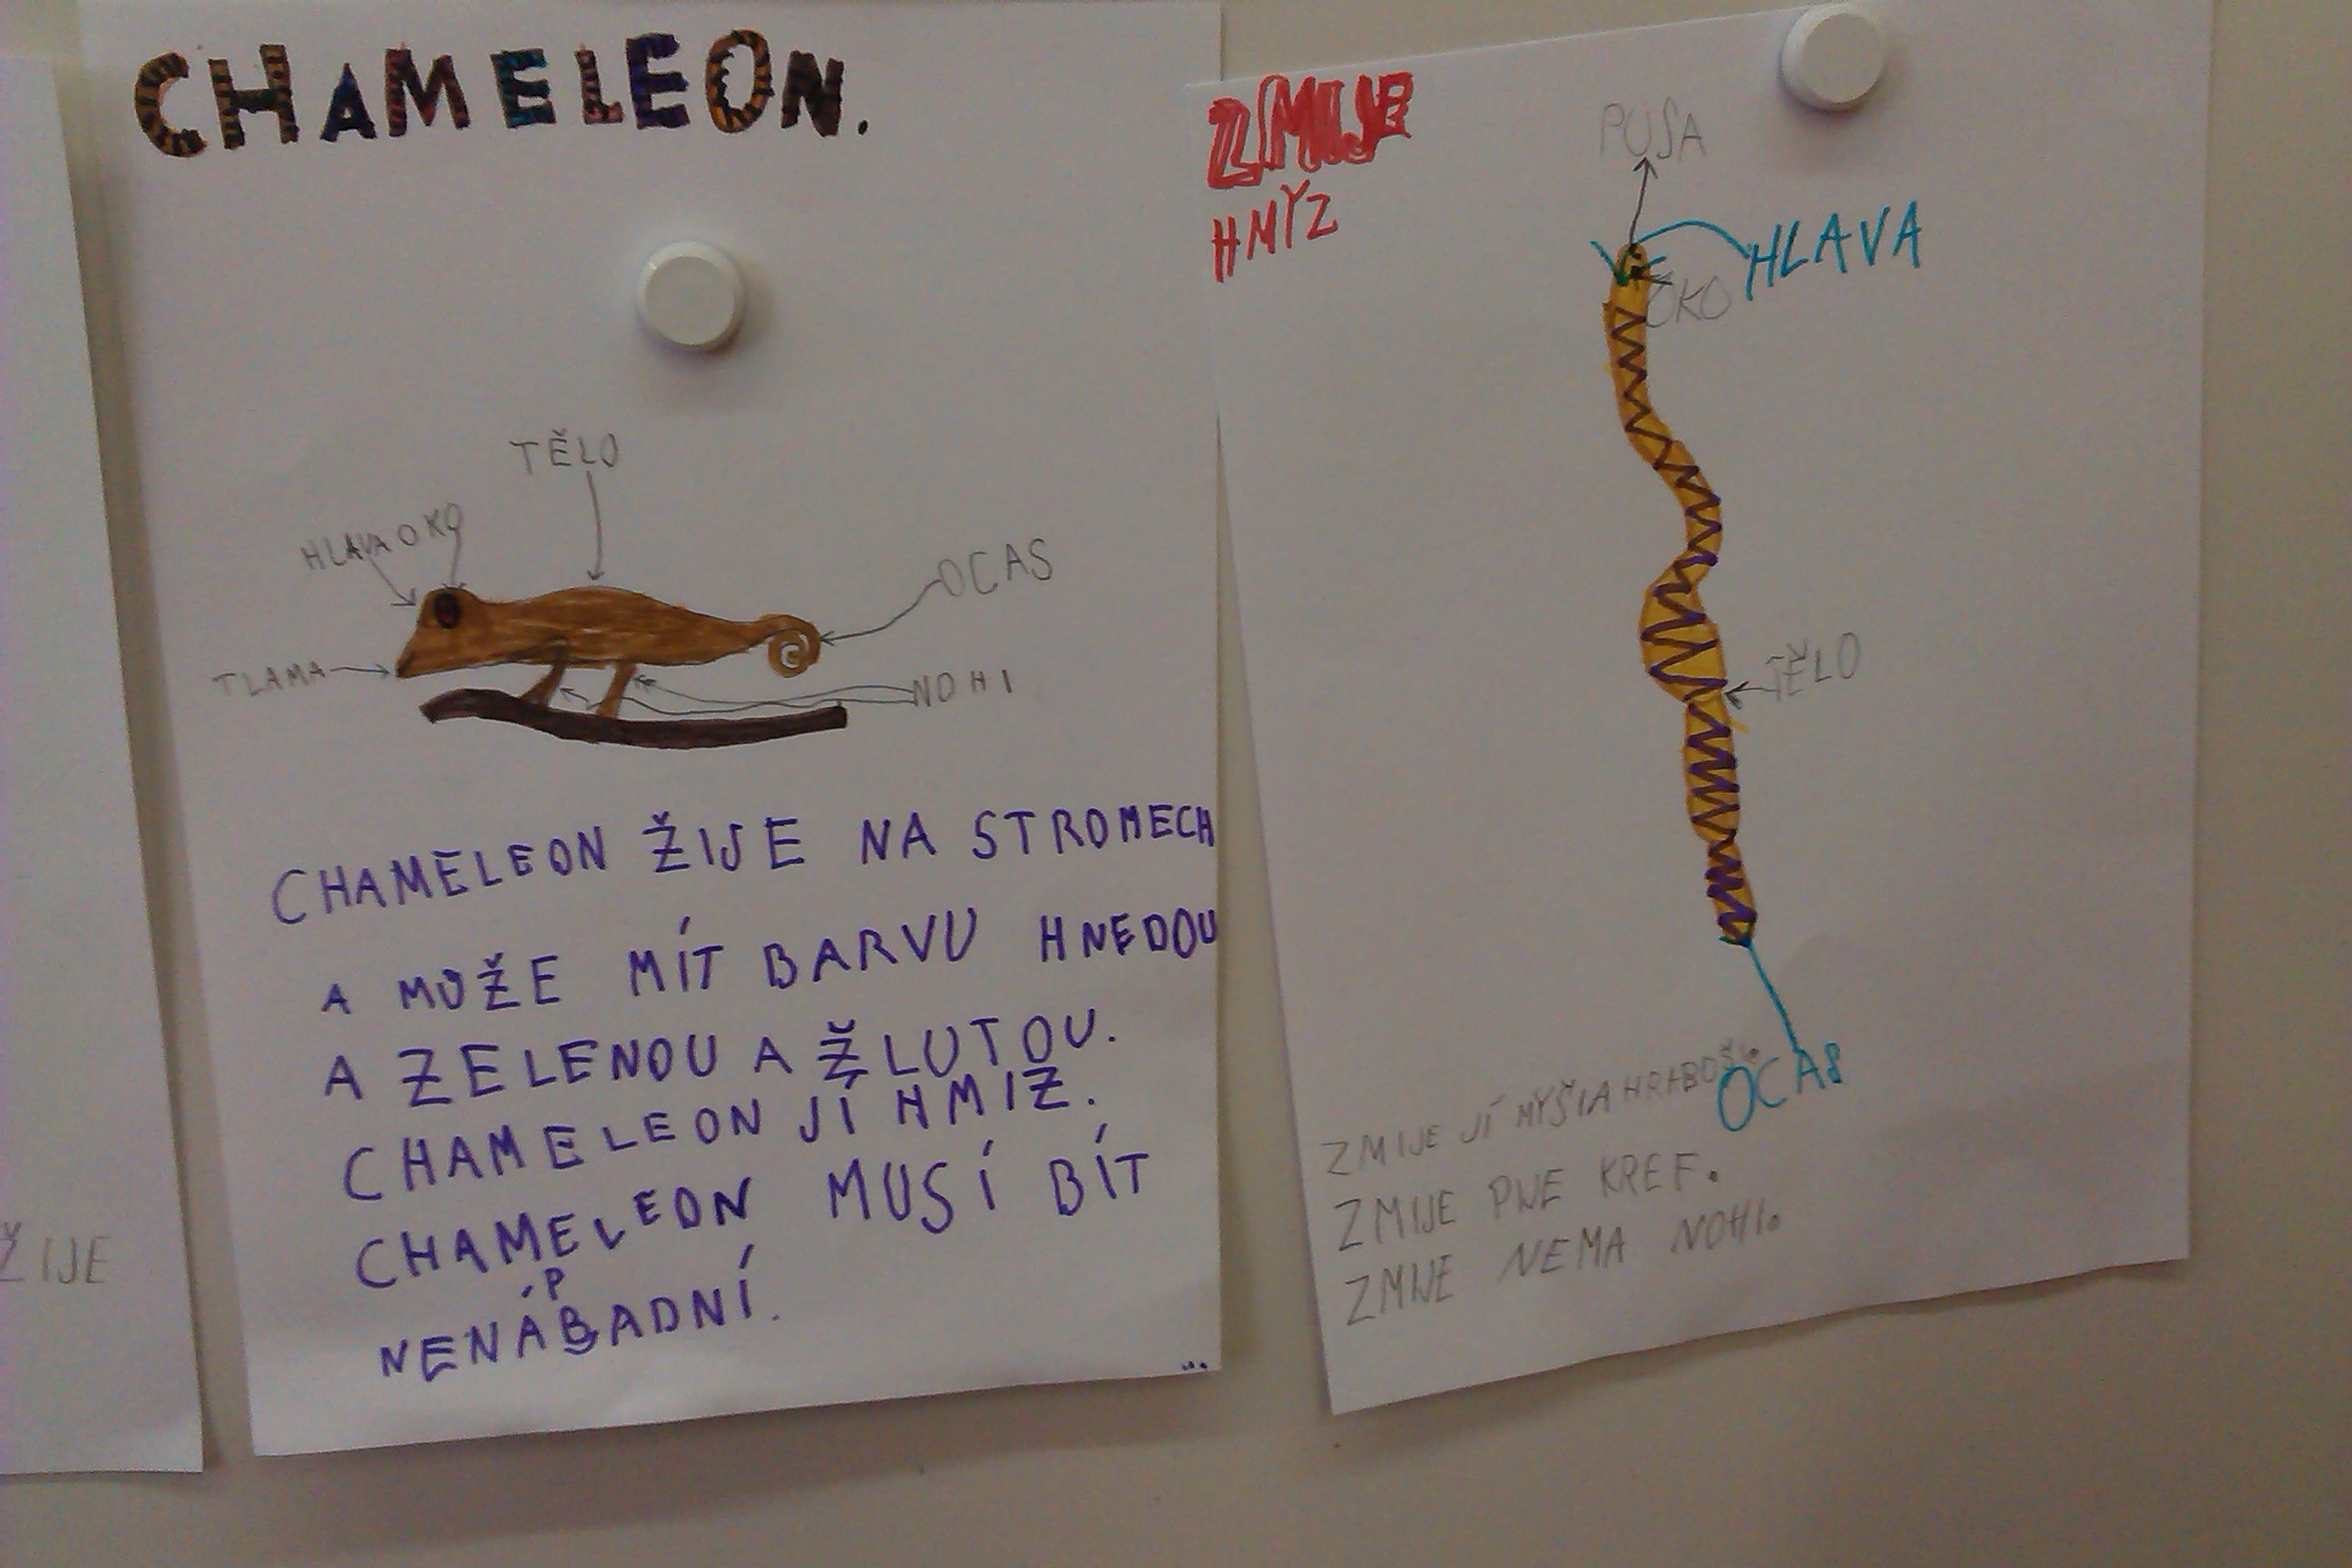 CHAMELEON.
TĚLO
HLAVA OKO
OCAS
TLAMA
NOHI
CHAMELEON ŽIJE NA STROMECH
A MUŽE MÍT BARVU HNEDOU
A ZELENOU A ŽLUTOU.
CHAMELEON JÍ HMIZ.
CHAMELEON MUSÍ BÍT
P
NENÁBADNÍ.
...
ŽIJE
ZMIJE
HMÝZ
PUSA
HLAVA
OKO
TĚLO
OCAS
ZMIJE JÍ MYŠI A HRABOŠ.
ZMIJE PIJE KREF.
ZMIJE NEMA NOHI.